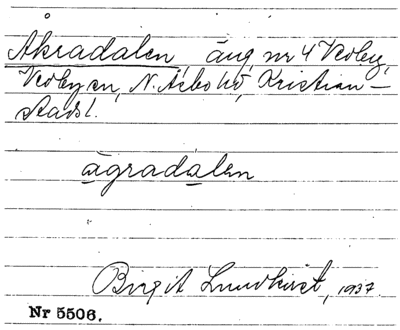 Åkradalen, äng nr 4 Vedby,
Vedby sn, N. Åsbo hd, Kristian-
stads l.
ägradalen
Birgit Lundkvist, 1937.
Nr 5506.